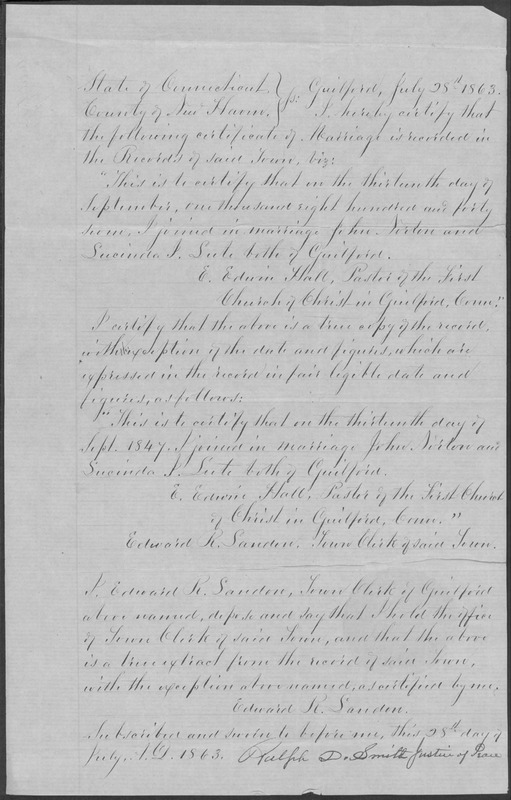 State of Connecticut } ss. Guilford, July 28th 1863.
County of New Haven. } I hereby certify that
the following certificate of Marriage is recorded in
the Records of said Town, viz:
"This is to certify that on the thirteenth day of
September, one thousand eight hundred and forty
seven, I joined in marriage John Norton and
Lucinda I. Lute both of Guilford.
E. Edwin Hall, Pastor of the First
Church of Christ in Guilford, Conn."
I certify that the above is a true copy of the record,
with exception of the date and figures, which are
expressed in the record in fair legible date and
figures, as follows:
"This is to certify that on the thirteenth day of
Sept. 1847. I joined in marriage John Norton and
Lucinda I. Lute both of Guilford.
E. Edwin Hall, Pastor of the First Church
of Christ in Guilford, Conn."
Edward R. Landon, Town Clerk of said Town.
I, Edward R. Landon, Town Clerk of Guilford
above named, depose and say that I hold the office
of Town Clerk of said Town, and that the above
is a true extract from the record of said Town,
with the exception above named, as certified by me.
Edward R. Landon.
Subscribed and sworn to before me, this 28th day of
July, A.D. 1863. Ralph D. Smith Justice of Peace